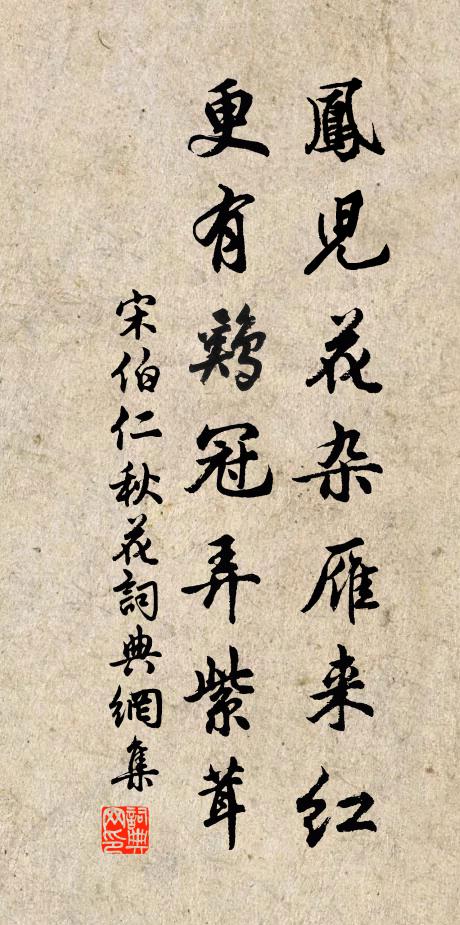 鳳兒花杂雁来红
更有鷄冠弄紫茸
宋伯仁秋花詞典網集
詞典网印